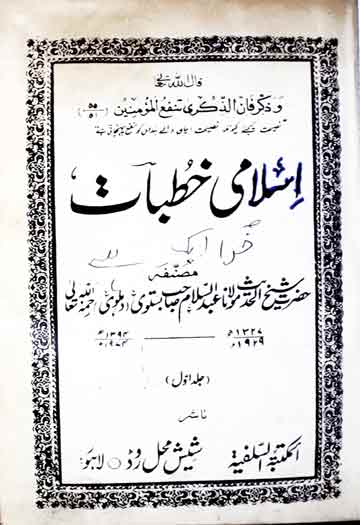 قال اللہ تعالیٰ
وذکر فان الذکری تنفع المؤمنین (۵۵/۵۱)
نصیحت نصیحت ایمان
اسلامی خطبات
خدا ایک ہے
مصنفہ
حضرت شیخ الحدیث مولانا عبدالسلام صاحب بستوی (دہلوی) رحمہ اللہ تعالیٰ
۱۳۲۷ھ ۱۳۹۴ھ
۱۹۰۹ء ۱۹۷۴ء
(جلد اول)
ناشر
المکتبۃ السلفیۃ شیش محل روڈ ○ لاہور